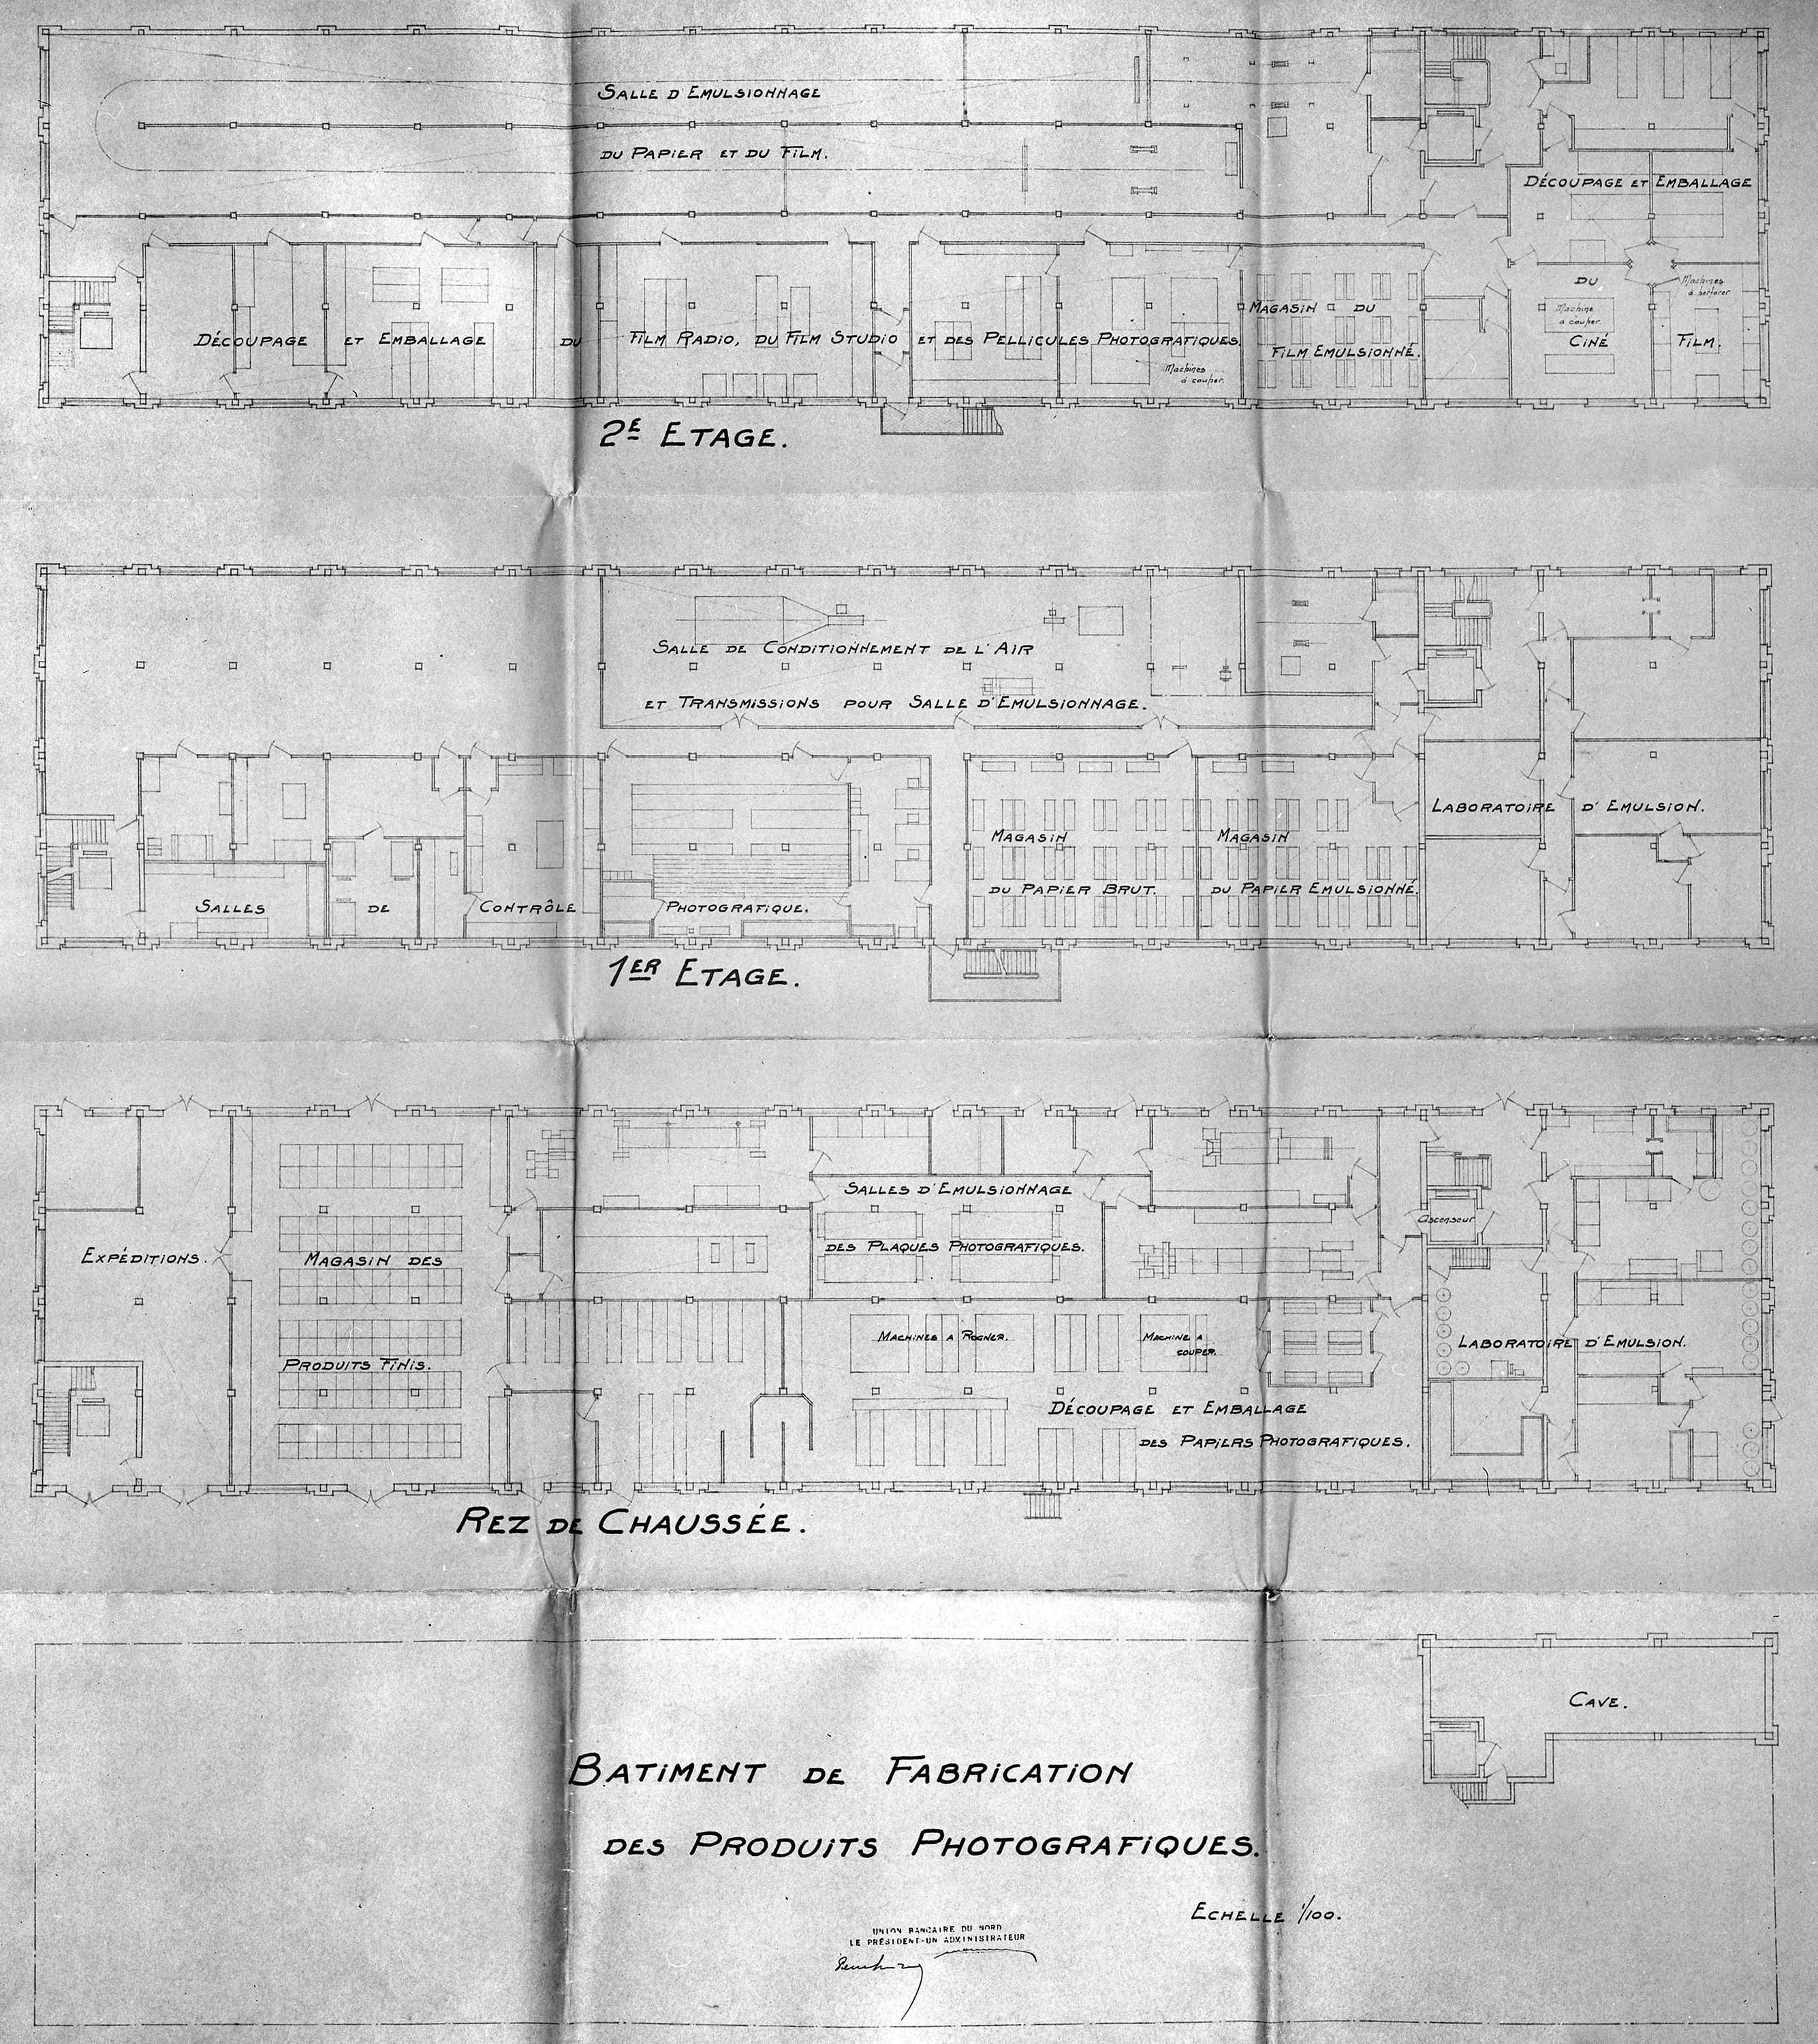 SALLE D'EMULSIONNAGE
DU PAPIER ET DU FILM.
DÉCOUPAGE ET EMBALLAGE
DU
CINÉ
FILM.
Machine
à couper.
Machines
à perforer
DÉCOUPAGE ET EMBALLAGE DU FILM RADIO, DU FILM STUDIO ET DES PELLICULES PHOTOGRAFIQUES.
Machines
à couper.
MAGASIN DU
FILM EMULSIONNÉ.
2E ETAGE.
SALLE DE CONDITIONNEMENT DE L'AIR
ET TRANSMISSIONS POUR SALLE D'EMULSIONNAGE.
LABORATOIRE D'EMULSION.
MAGASIN
DU PAPIER BRUT.
MAGASIN
DU PAPIER EMULSIONNÉ.
SALLES DE CONTRÔLE PHOTOGRAFIQUE.
1ER ETAGE.
SALLES D'EMULSIONNAGE
DES PLAQUES PHOTOGRAFIQUES.
Ascenseur
EXPÉDITIONS.
MAGASIN DES
PRODUITS FINIS.
MACHINES A ROGNER.
MACHINE A
COUPER.
LABORATOIRE D'EMULSION.
DÉCOUPAGE ET EMBALLAGE
DES PAPIERS PHOTOGRAFIQUES.
REZ DE CHAUSSÉE.
CAVE.
BATIMENT DE FABRICATION
DES PRODUITS PHOTOGRAFIQUES.
ECHELLE 1/100.
UNION BANCAIRE DU NORD
LE PRÉSIDENT-UN ADMINISTRATEUR